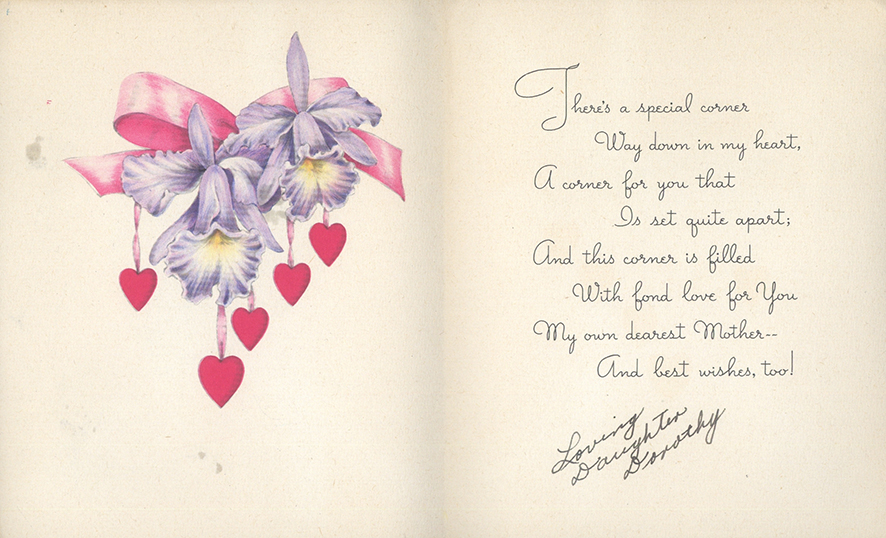 There's a special corner
Way down in my heart,
A corner for you that
Is set quite apart;
And this corner is filled
With fond love for You
My own dearest Mother--
And best wishes, too!
Loving
Daughter
Dorothy